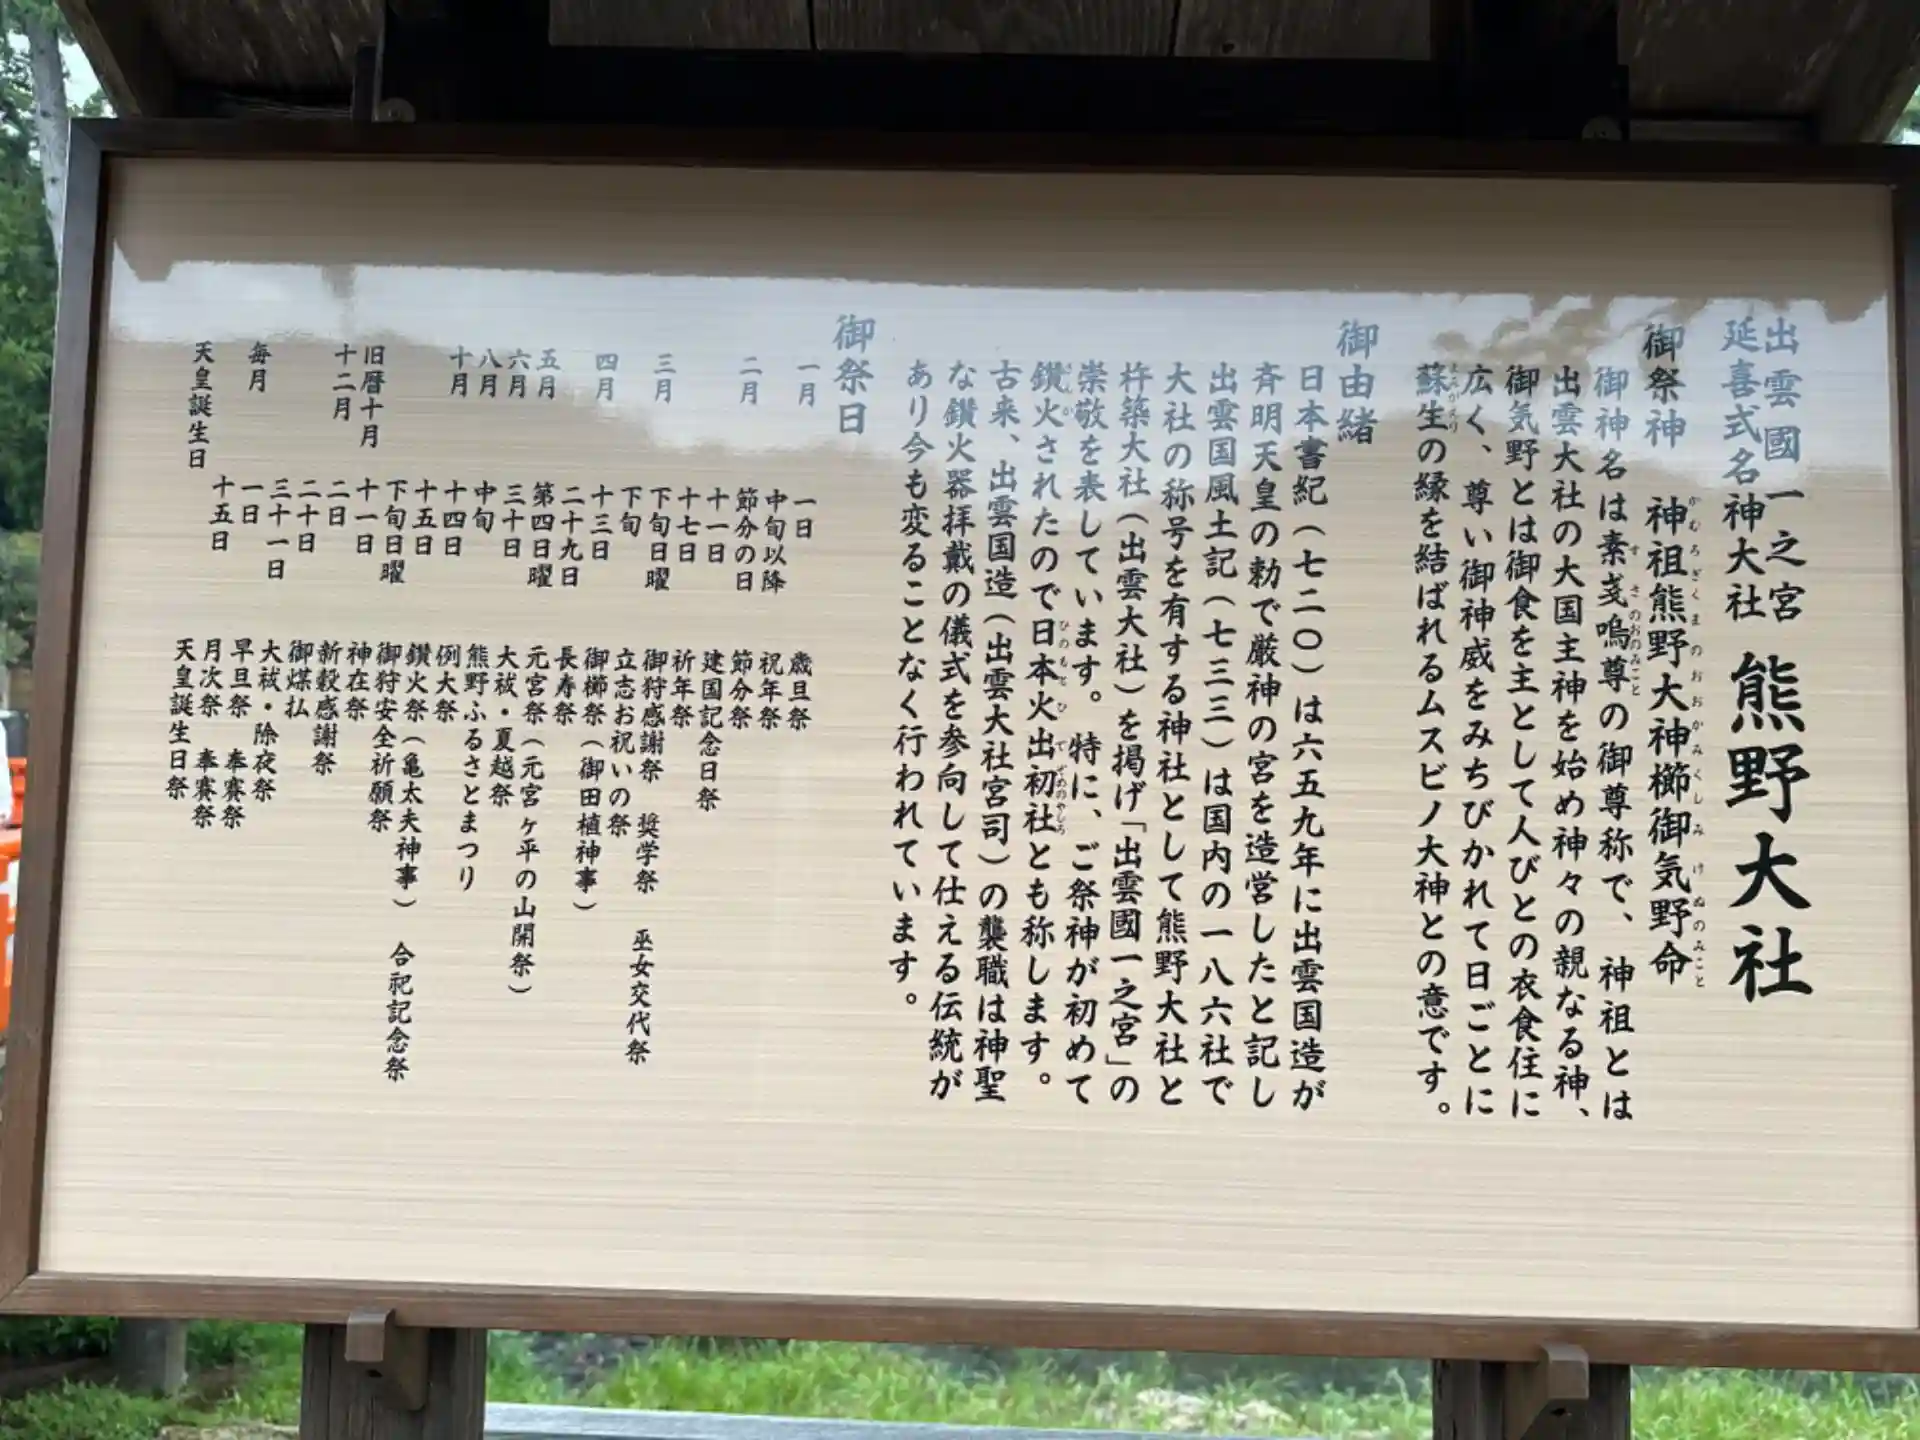 出雲國一之宮
延喜式名神大社
熊野大社
御祭神 神祖熊野大神櫛御気野命
かむろぎくまのおおかみくしみけぬのみこと
御神名は素戔嗚尊の御尊称で、神祖とは
すさのおのみこと
出雲大社の大国主神を始め神々の親なる神、
御気野とは御食を主として人びとの衣食住に
広く、尊い御神威をみちびかれて日ごとに
蘇生の縁を結ばれるムスビノ大神との意です。
よみがえり
御由緒
日本書紀（七二〇）は六五九年に出雲国造が
斉明天皇の勅で厳神の宮を造営したと記し
出雲国風土記（七三三）は国内の一八六社で
大社の称号を有する神社として熊野大社と
杵築大社（出雲大社）を掲げ「出雲國一之宮」の
崇敬を表しています。特に、ご祭神が初めて
鑽火されたので日本火出初社とも称します。
さんか ひのもとひでぞめのやしろ
古来、出雲国造（出雲大社宮司）の襲職は神聖
な鑽火器拝戴の儀式を参向して仕える伝統が
あり今も変ることなく行われています。
御祭日
一月 一日 歳旦祭
中旬以降 祝年祭
二月 節分の日 節分祭
十一日 建国記念日祭
十七日 祈年祭
三月 下旬日曜 御狩感謝祭 奨学祭 巫女交代祭
下旬 立志お祝いの祭
四月 十三日 御櫛祭（御田植神事）
二十九日 長寿祭
五月 第四日曜 元宮祭（元宮ヶ平の山開祭）
六月 三十日 大祓・夏越祭
八月 中旬 熊野ふるさとまつり
十月 十四日 例大祭
十五日 鑽火祭（亀太夫神事） 合祀記念祭
下旬日曜 御狩安全祈願祭
旧暦十月 十一日 神在祭
十二月 二日 新穀感謝祭
二十日 御煤払
三十一日 大祓・除夜祭
毎月 一日 早旦祭 奉賽祭
十五日 月次祭 奉賽祭
天皇誕生日 天皇誕生日祭